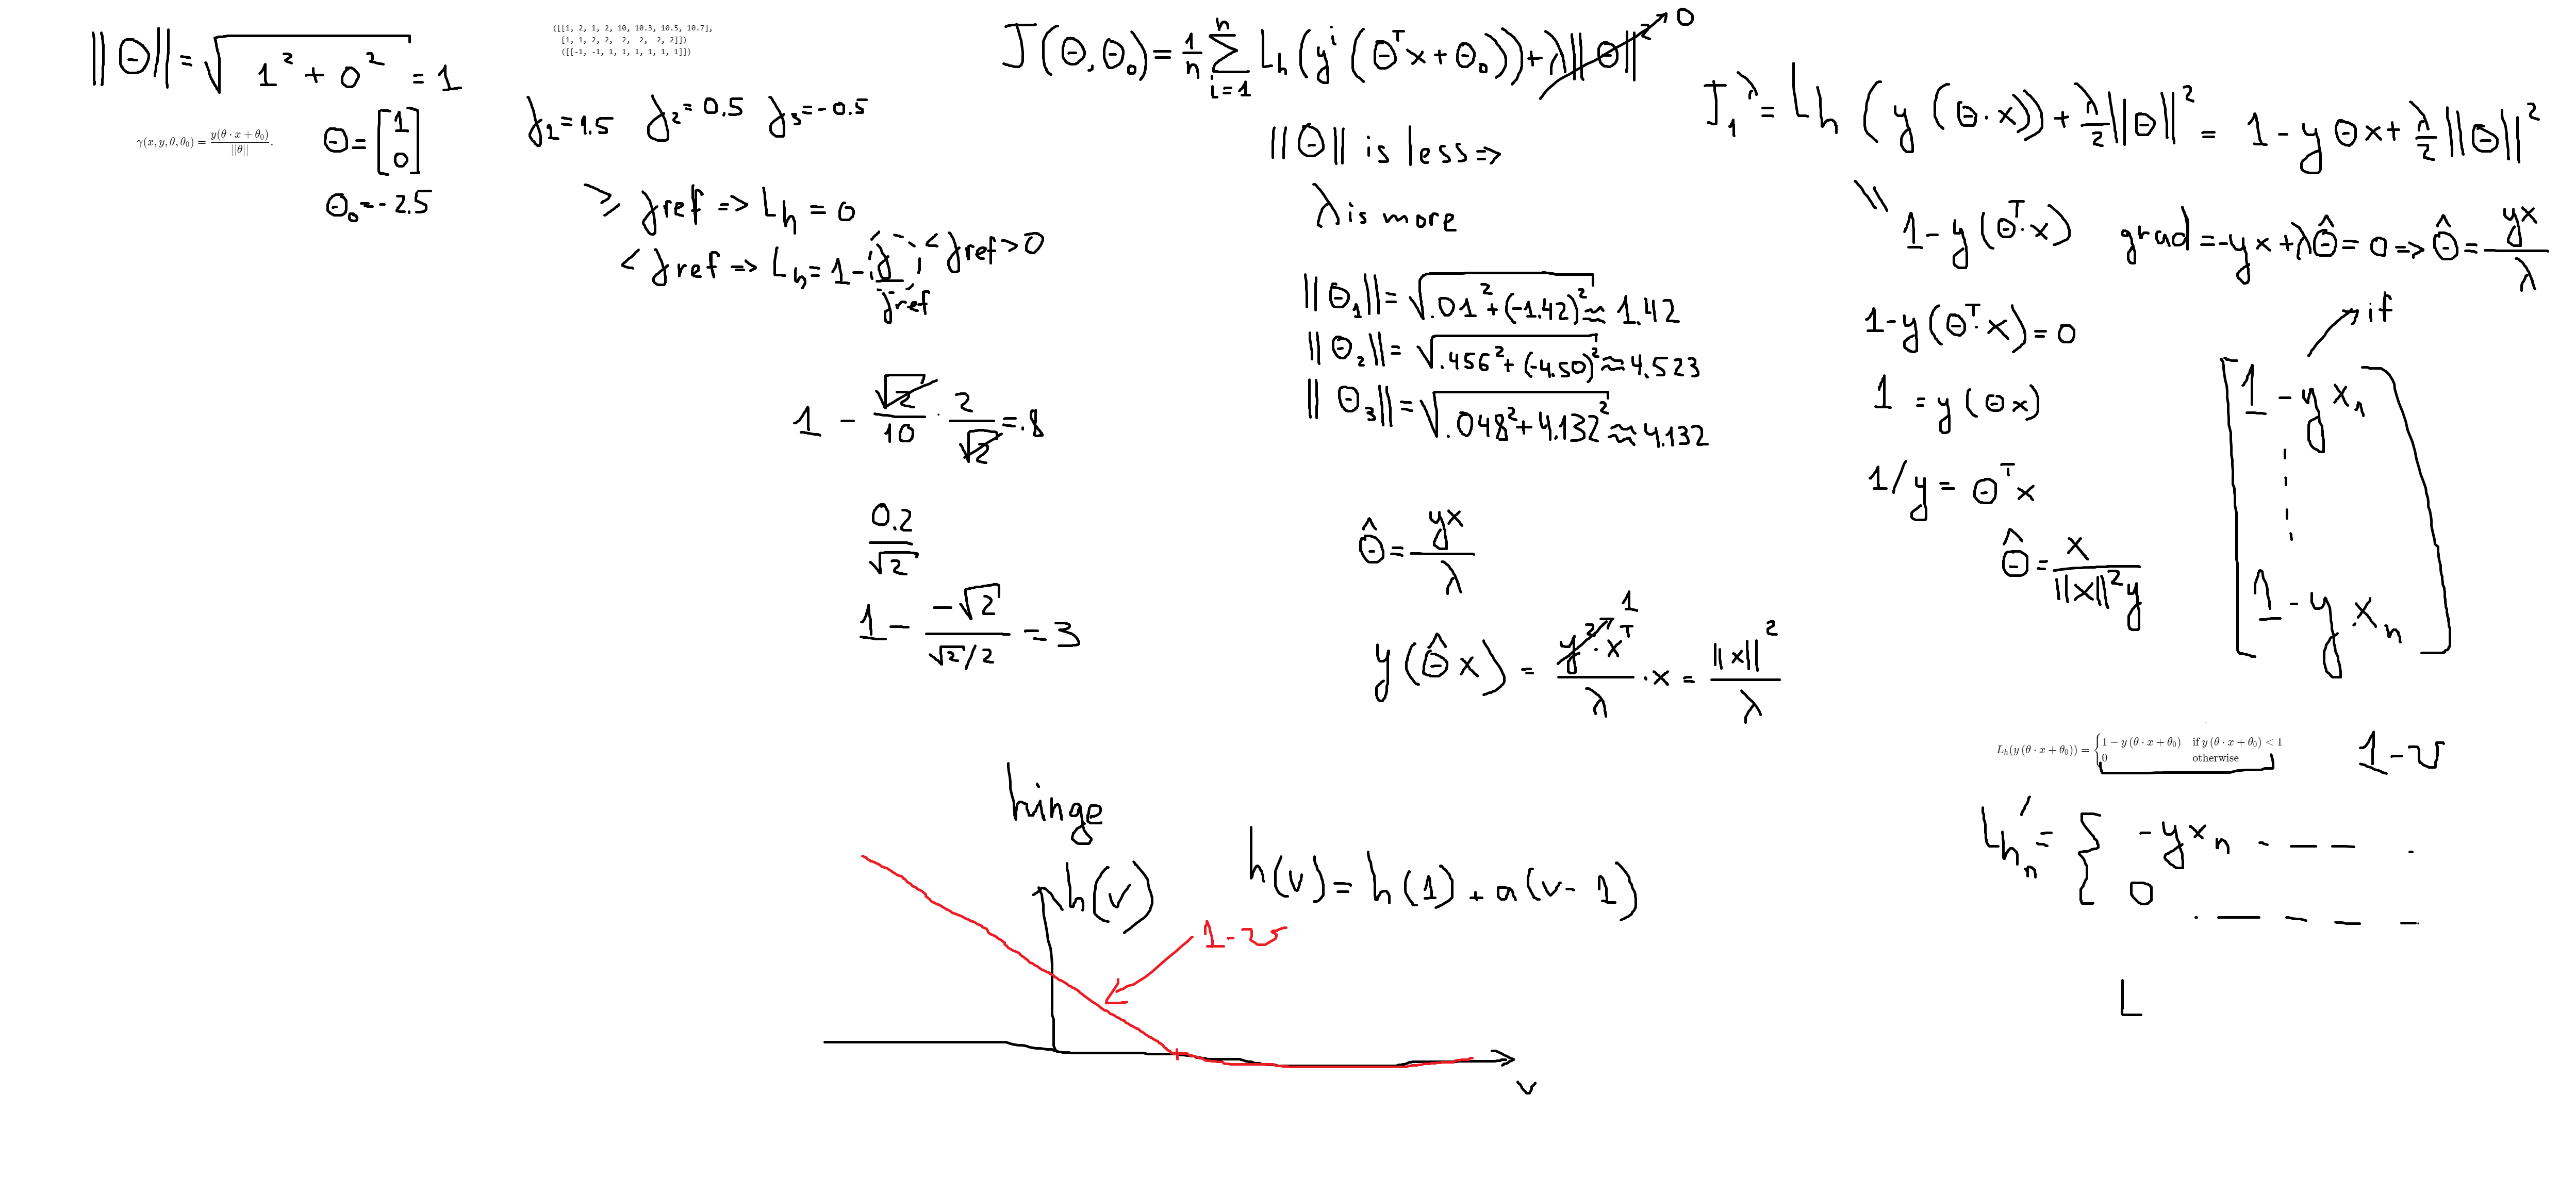 ||Θ|| = √(1² + 0²) = 1
γ(x, y, θ, θ₀) = y(θ · x + θ₀) / ||θ||.
Θ = [1 0]
Θ₀ = -2.5
([[1, 2, 1, 2, 10, 10.3, 10.5, 10.7],
[1, 1, 2, 2, 2, 2, 2, 2]])
([[-1, -1, 1, 1, 1, 1, 1, 1]])
γ₁=1.5 γ₂=0.5 γ₃=-0.5
≥ γref => Lh = 0
< γref => Lh = 1 - γ/γref < γref > 0
1 - √2/10 · 2/√2 = .8
0.2/√2
1 - -√2/(√2/2) = 3
J(Θ, Θ₀) = 1/n Σ i=1 n Lh(yⁱ(Θᵀx + Θ₀)) + λ||Θ||² 0
||Θ|| is less =>
λ is more
||Θ₁|| = √(.01² + (-1.42)²) ≈ 1.42
||Θ₂|| = √(.456² + (-4.50)²) ≈ 4.523
||Θ₃|| = √(.048² + 4.132²) ≈ 4.132
Θ̂ = yx/λ
y(Θ̂x) = y²·xᵀ/λ · x = ||x||²/λ
1
J₁^λ = Lh(y(Θ·x)) + λ/2||Θ||² = 1 - yΘx + λ/2||Θ||²
\\
1 - y(Θᵀ·x) grad = -yx + λΘ̂ = 0 => Θ̂ = yx/λ
1 - y(Θᵀ·x) = 0
1 = y(Θx)
1/y = Θᵀx
Θ̂ = x/(||x||²y)
if
1 - yx₁
1 - y·xn
Lₕ(y(θ · x + θ₀)) = { 1 − y(θ · x + θ₀) if y(θ · x + θ₀) < 1
0 otherwise
1-v
Lh'n = { -yxn
0
L
hinge
h(v) h(v) = h(1) + a(v - 1)
1-v
v